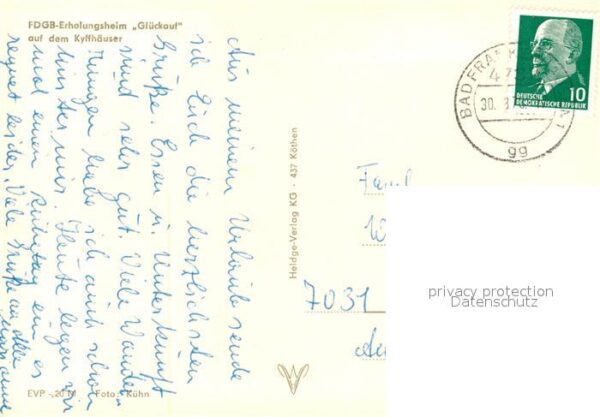 FDGB-Erholungsheim „Glückauf"
auf dem Kyffhäuser
Aus meinem Urlaub sende
ich Euch die herzlichsten
Grüße. Essen u. Unterkunft
sind sehr gut. Viele Wander-
ungen habe ich auch schon
hinter mir. Heute legen wir
mal einen Ruhetag ein, es
regnet leider. Viele Grüße an alle
EVP -,20 M Foto: Kühn
Heldge-Verlag KG · 437 Köthen
BAD FRANK
30. 8.
gg
DEUTSCHE
DEMOKRATISCHE REPUBLIK
10
Fam
W
7031
privacy protection
Datenschutz